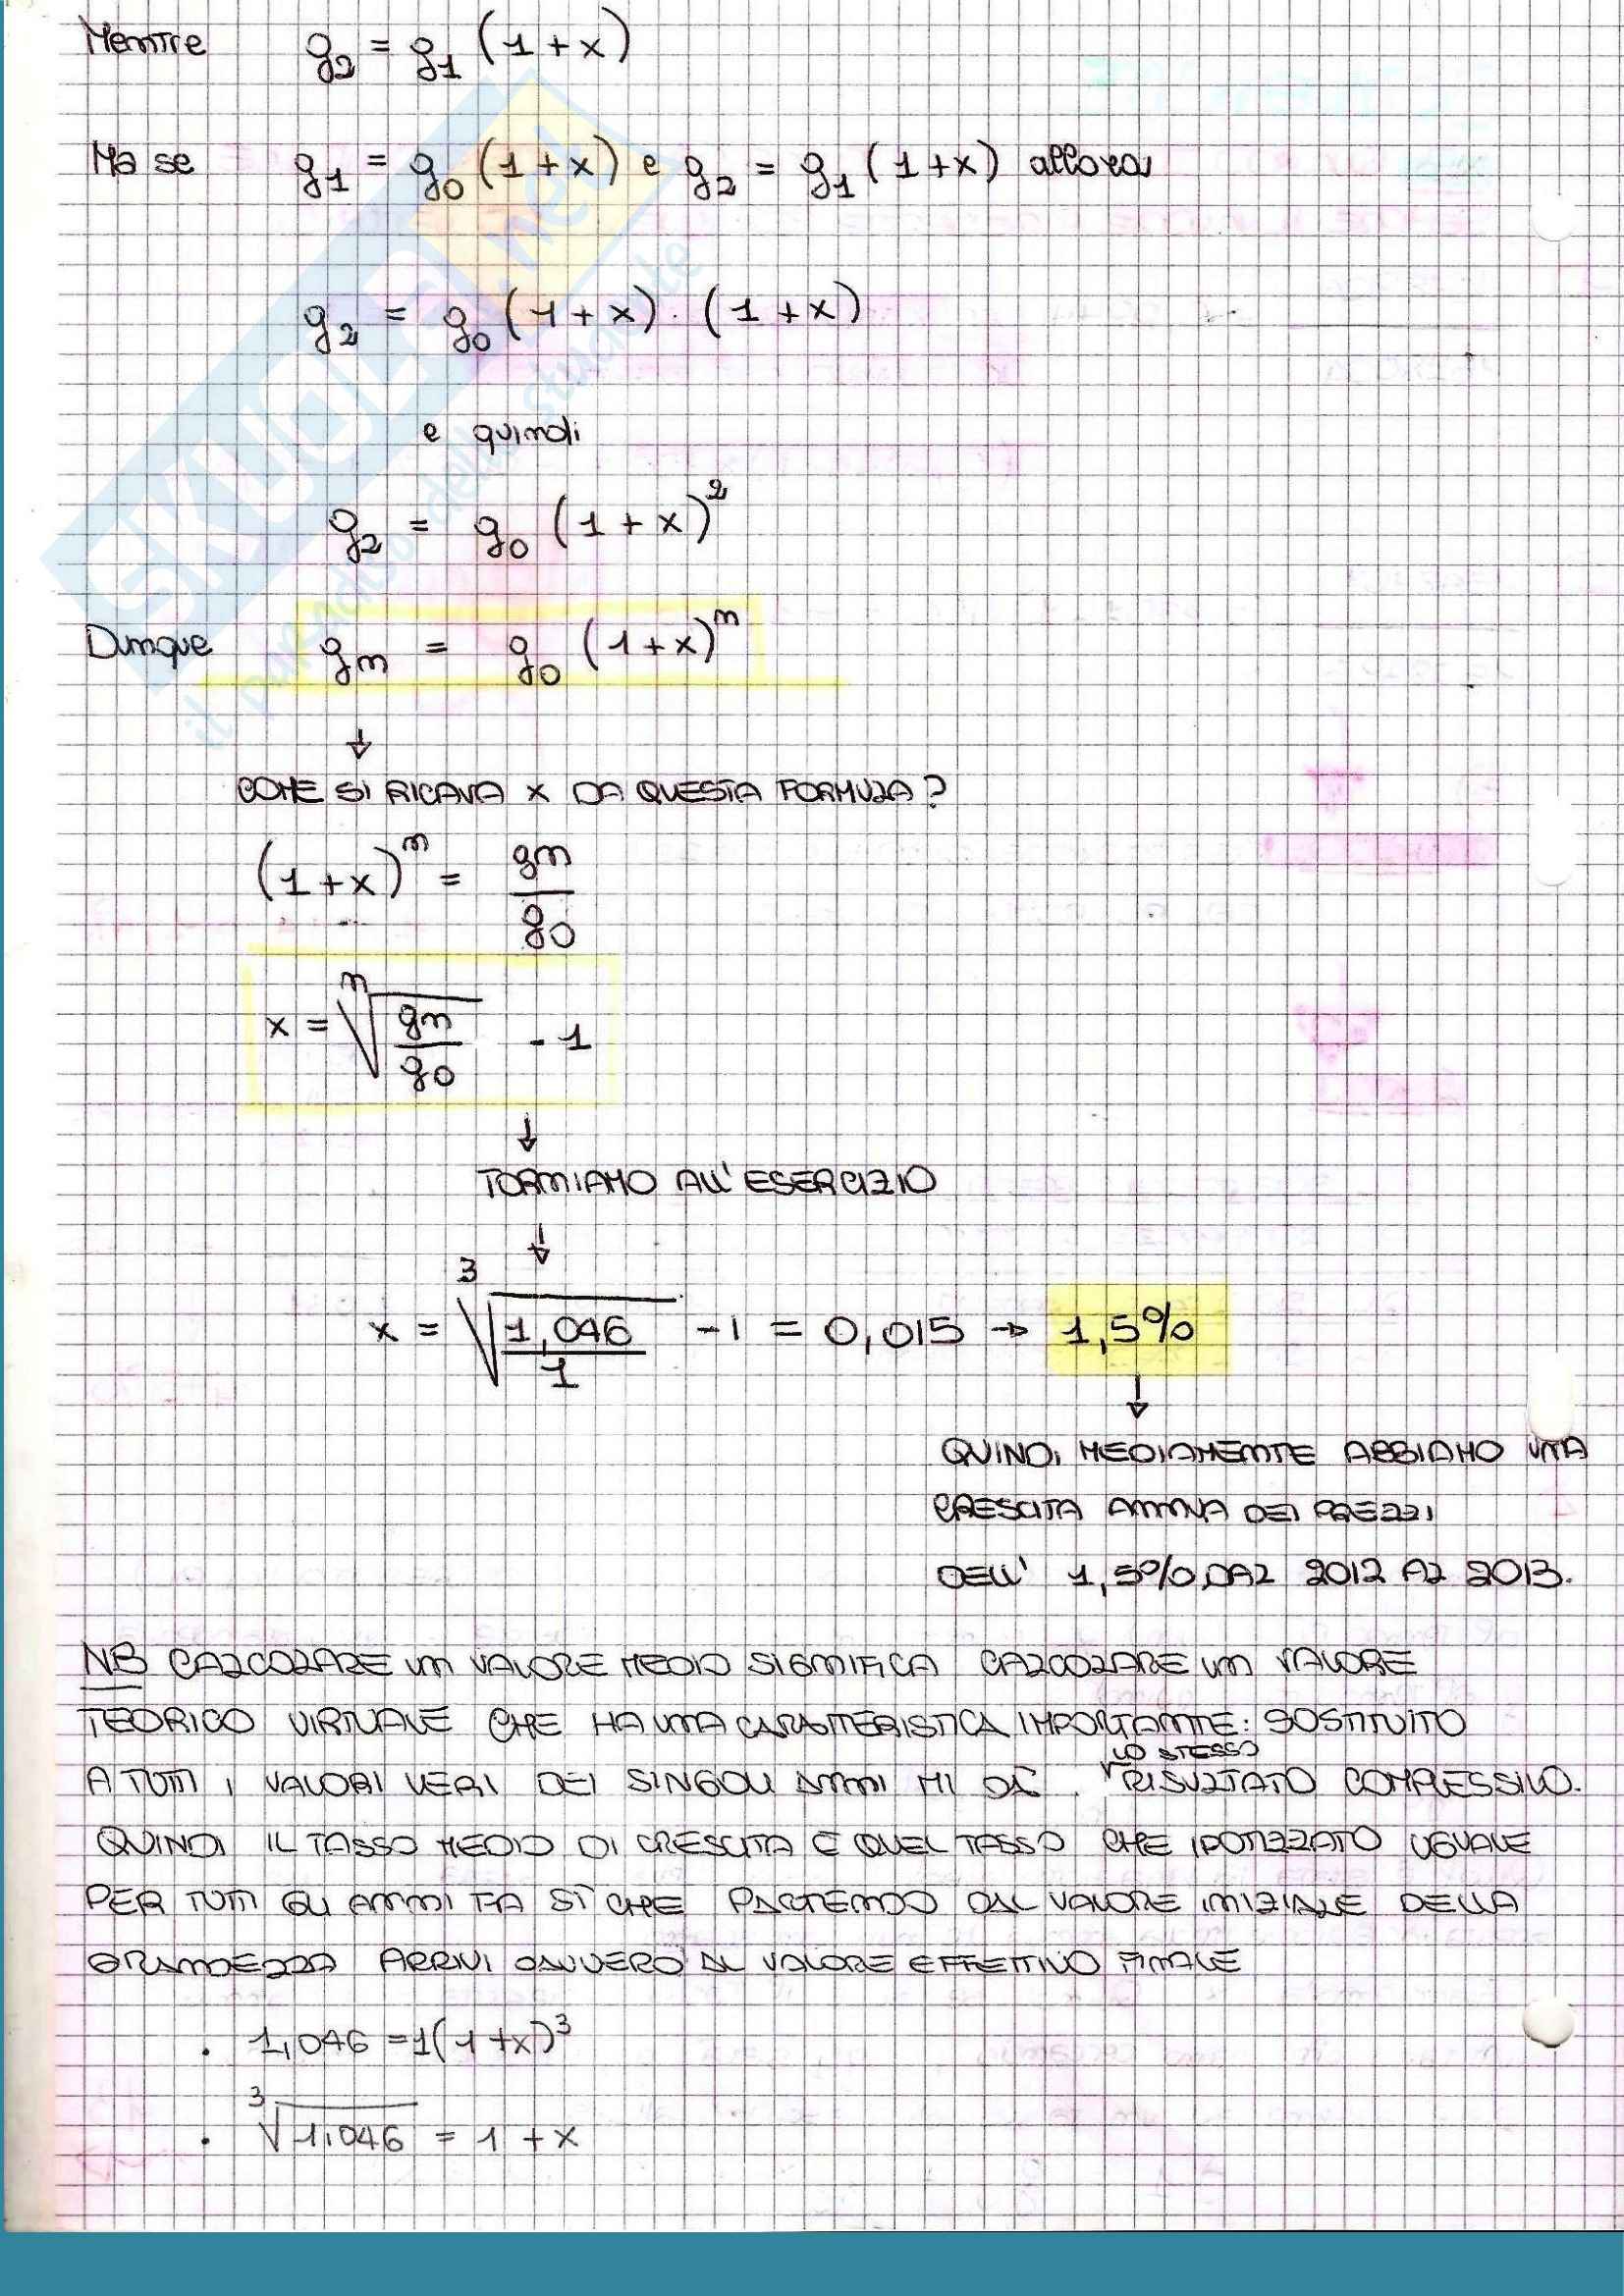 Mentre g₂ = g₁ (1+x)
Ma se g₁ = g₀ (1+x) e g₂ = g₁ (1+x) allora
g₂ = g₀ (1+x) · (1+x)
e quindi
g₂ = g₀ (1+x)²
Dunque gn = g₀ (1+x)ⁿ
↓
COME SI RICAVA X DA QUESTA FORMULA?
(1+x)ⁿ = gn/g₀
x = ⁿ√(gn/g₀) - 1
↓
TORNIAMO ALL'ESERCIZIO
↓
x = ³√(1,046/1) - 1 = 0,015 → 1,5%
↓
QUINDI MEDIAMENTE ABBIAMO UNA
CRESCITA ANNUA DEI PREZZI
DELL' 1,5% DAL 2012 AL 2013.
NB CALCOLARE UN VALORE MEDIO SIGNIFICA CALCOLARE UN VALORE
TEORICO VIRTUALE CHE HA UNA CARATTERISTICA IMPORTANTE: SOSTITUITO
A TUTTI I VALORI VERI DEI SINGOLI ANNI MI DÀ LO STESSO RISULTATO COMPLESSIVO.
QUINDI IL TASSO MEDIO DI CRESCITA È QUEL TASSO CHE IPOTIZZATO UGUALE
PER TUTTI GLI ANNI FA SÌ CHE PARTENDO DAL VALORE INIZIALE DELLA
GRANDEZZA ARRIVI DAVVERO AL VALORE EFFETTIVO FINALE
· 1,046 = 1(1+x)³
· ³√1,046 = 1 + x
SKUOLA.net
il paradiso dello studente